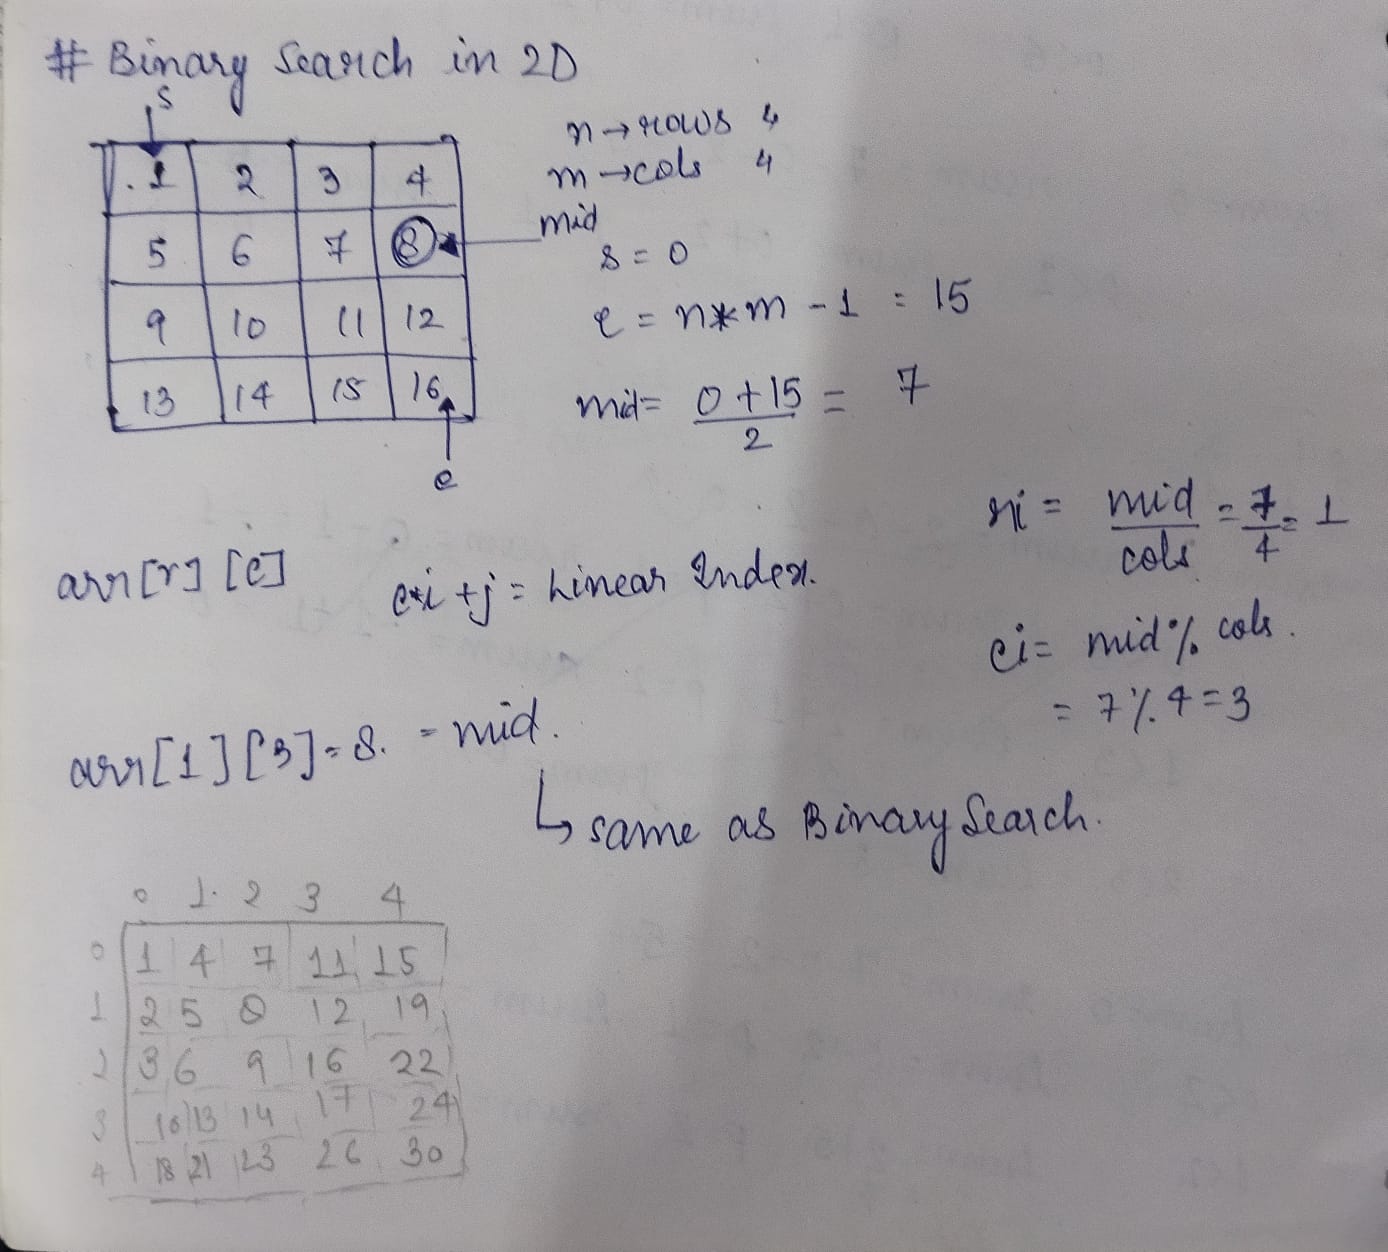 # Binary Search in 2D
s
1 2 3 4
5 6 7 8
9 10 11 12
13 14 15 16
e
n → rows 4
m → cols 4
mid
s = 0
e = n*m - 1 = 15
mid = 0 + 15 / 2 = 7
ri = mid / cols = 7 / 4 = 1
arr[r][c]
c*i + j = Linear Index.
ci = mid % cols.
= 7 % 4 = 3
arr[1][3] = 8. = mid.
↳ same as Binary Search.
0 1 2 3 4
0 1 4 7 11 15
1 2 5 8 12 19
2 3 6 9 16 22
3 10 13 14 17 24
4 18 21 23 26 30